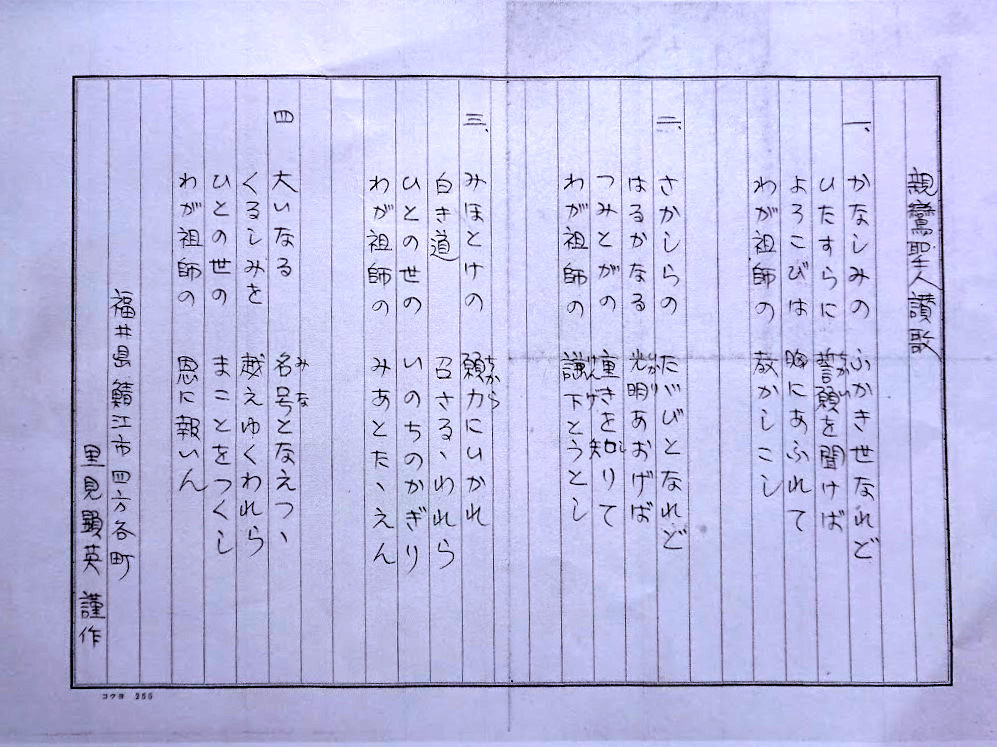 親鸞聖人讃歌
一、かなしみの ふかき世なれど
ひたすらに 誓願を聞けば
よろこびは 胸にあふれて
わが祖師の 教かしこし
二、さかしらの たびびとなれど
はるかなる 光明あおげば
つみとがの 重きを知りて
わが祖師の 謙下とうとし
三、みほとけの 願力にひかれ
白き道 召さるゝわれら
ひとの世の いのちのかぎり
わが祖師の みあとたゝえん
四 大いなる 名号となえつゝ
くるしみを 越えゆくわれら
ひとの世の まことをつくし
わが祖師の 恩に報いん
福井県鯖江市四方谷町
里見顕英 謹作
コクヨ 255